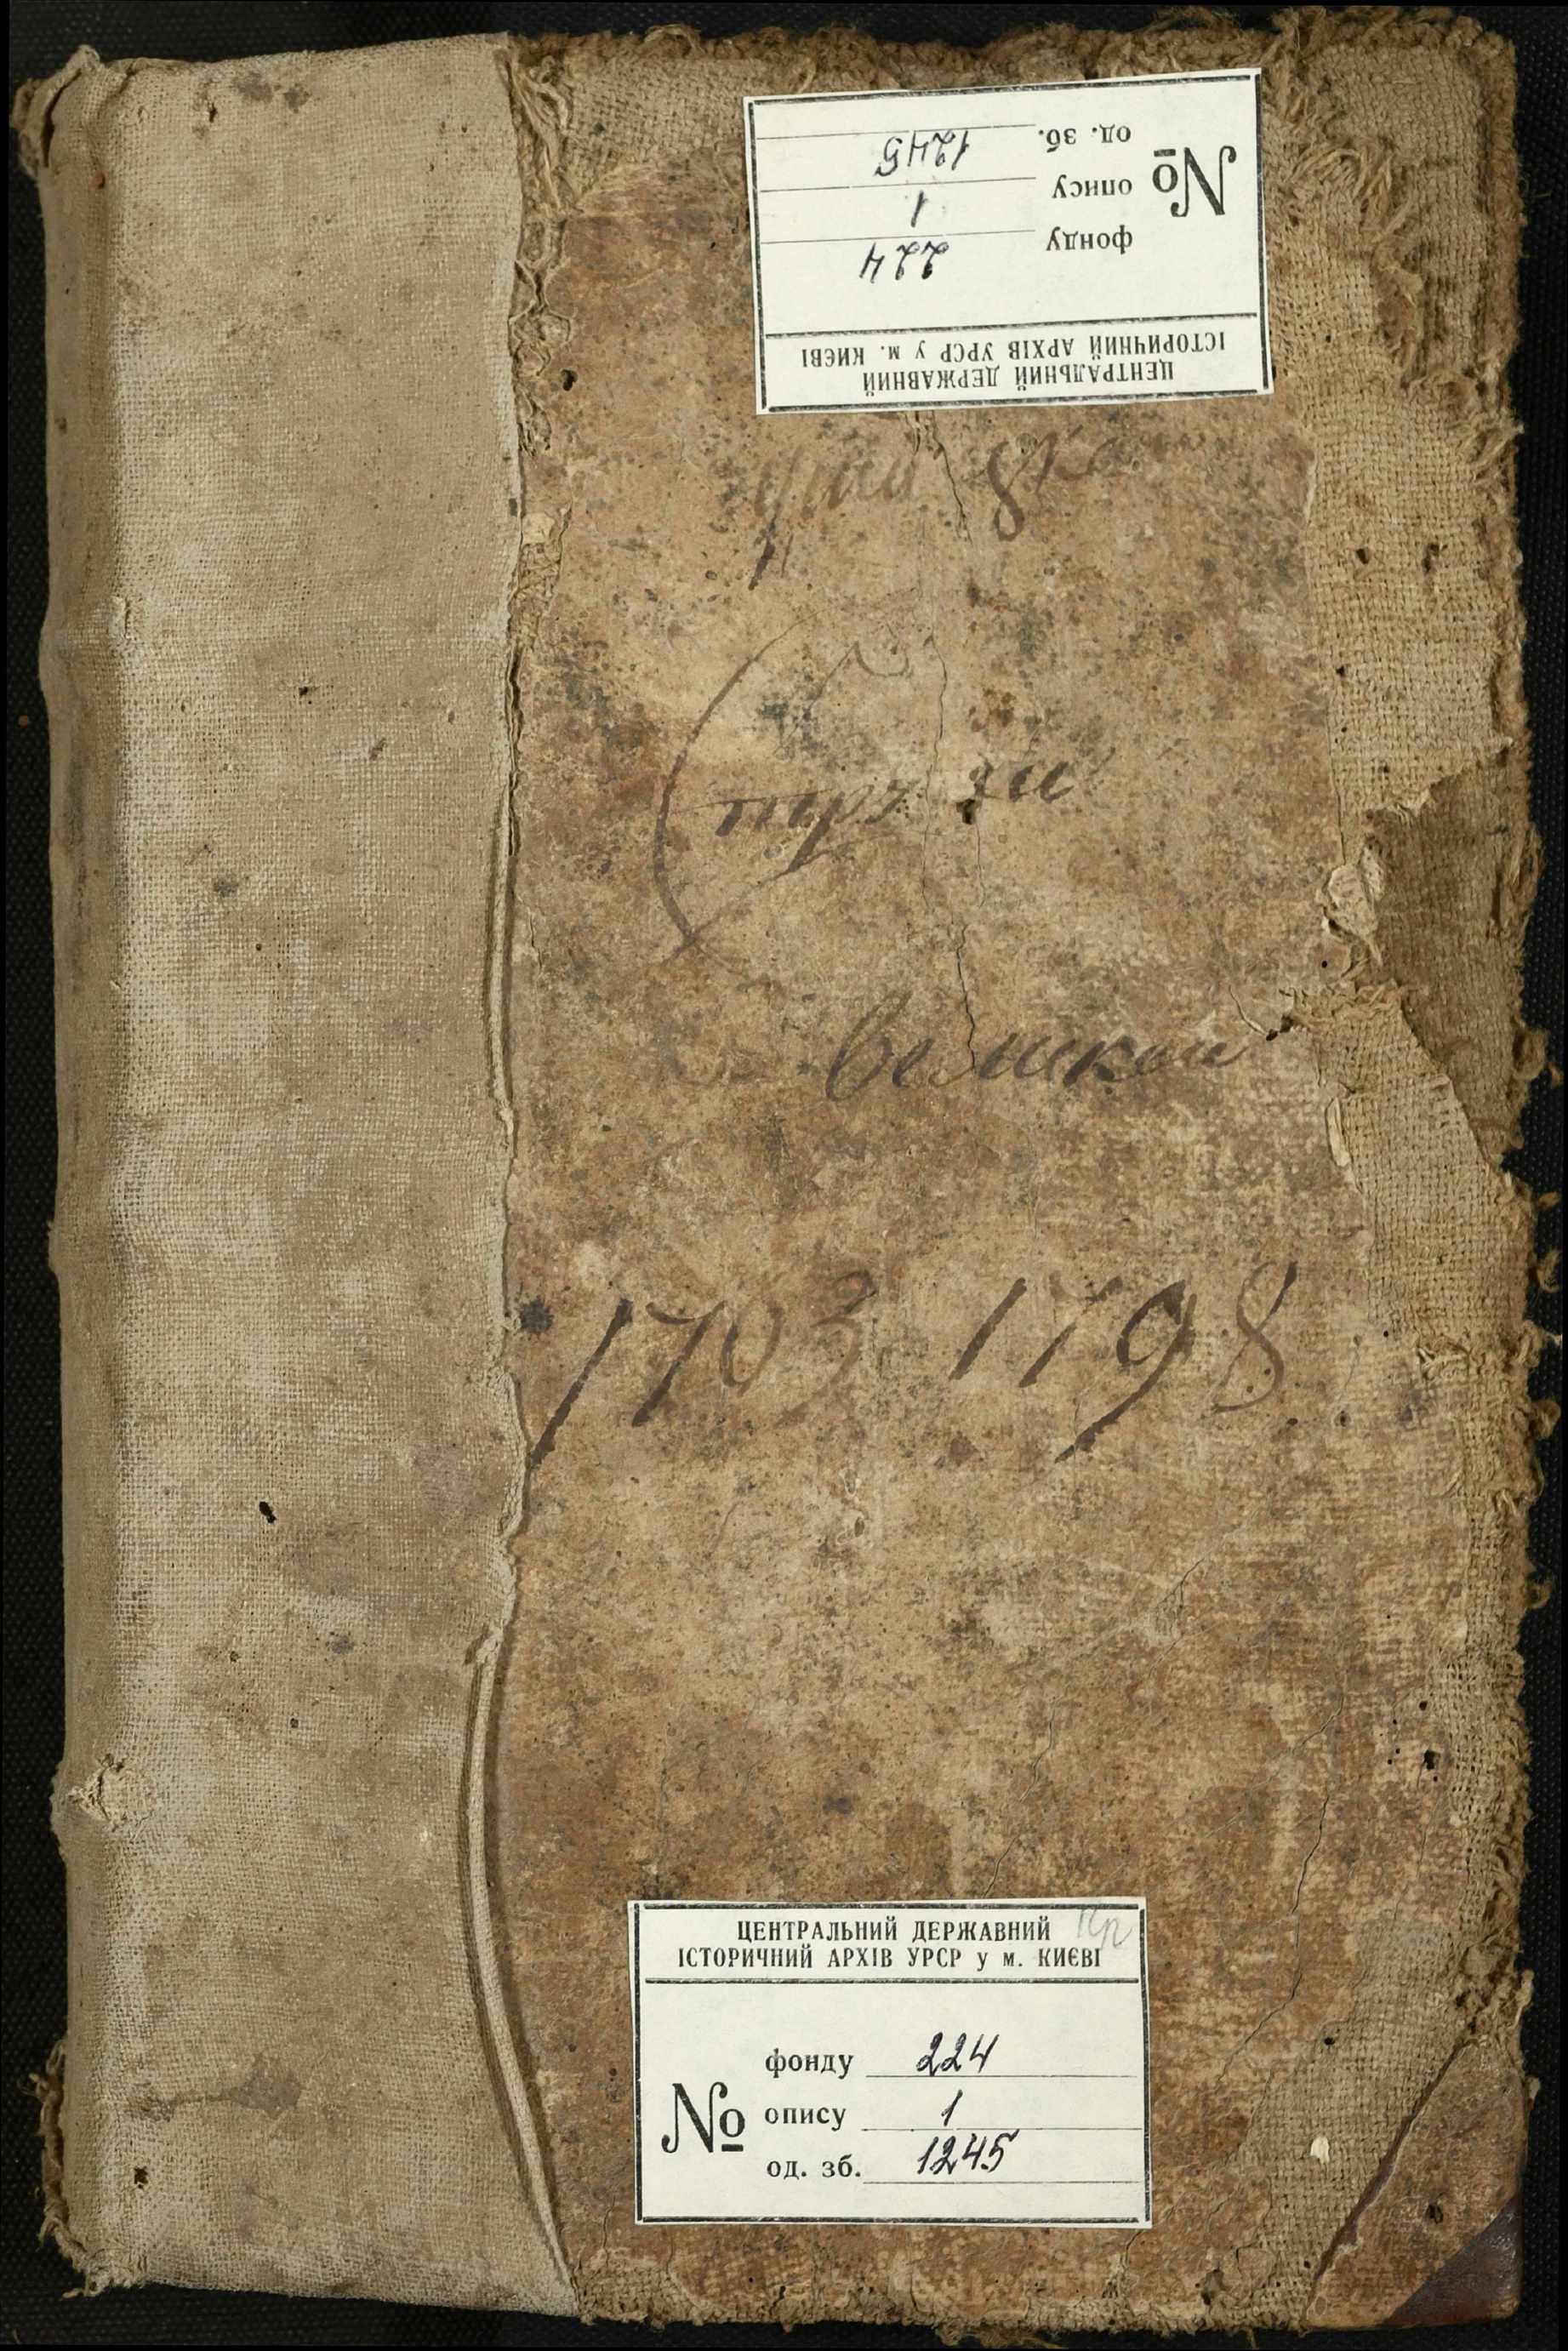 ЦЕНТРАЛЬНИЙ ДЕРЖАВНИЙ
ІСТОРИЧНИЙ АРХІВ УРСР у м. КИЄВІ
фонду 224
№ опису 1
од. зб. 1245
1703 1798
ЦЕНТРАЛЬНИЙ ДЕРЖАВНИЙ
ІСТОРИЧНИЙ АРХІВ УРСР у м. КИЄВІ
фонду 224
№ опису 1
од. зб. 1245